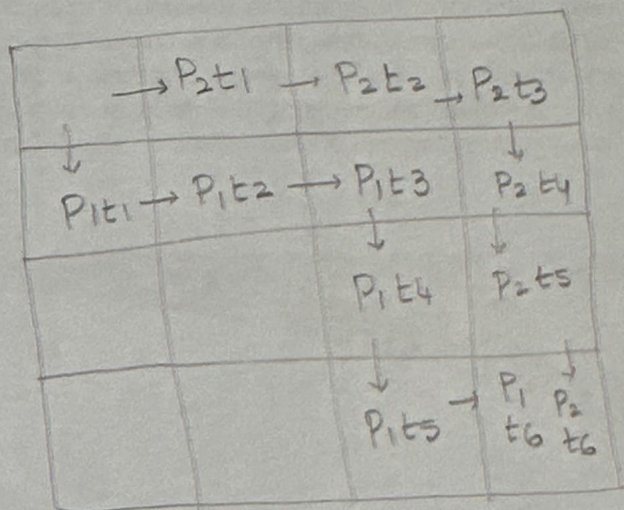 → P2t1 → P2t2 → P2t3
↓ ↓
P1t1 → P1t2 → P1t3 P2t4
↓ ↓
P1t4 P2t5
↓ ↓
P1t5 → P1 P2
t6 t6